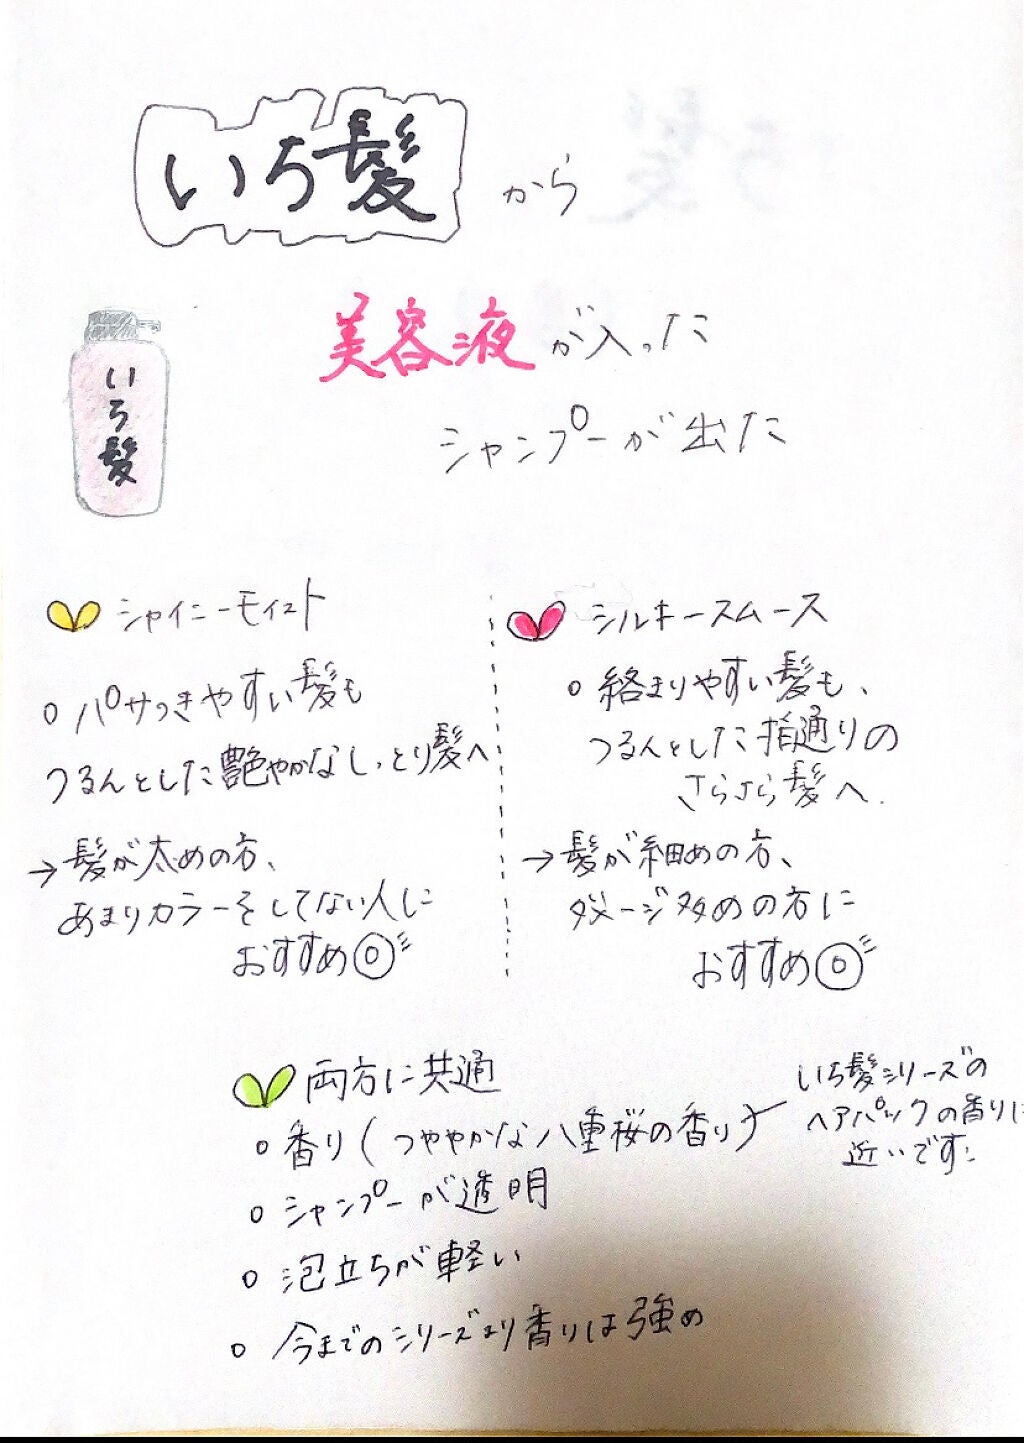 いち髪から
美容液が入った
シャンプーが出た
いち髪
シャイニーモイスト
○パサつきやすい髪も
つるんとした艶やかなしっとり髪へ
→髪が太めの方、
あまりカラーをしてない人に
おすすめ◎
シルキースムース
○絡まりやすい髪も、
つるんとした指通りの
さらさら髪へ.
→髪が細めの方、
ダメージ多めの方に
おすすめ◎
両方に共通
○香り(つややかな八重桜の香り)
いち髪シリーズの
ヘアパックの香りに
近いです!
○シャンプーが透明
○泡立ちが軽い
○今までのシリーズより香りは強め